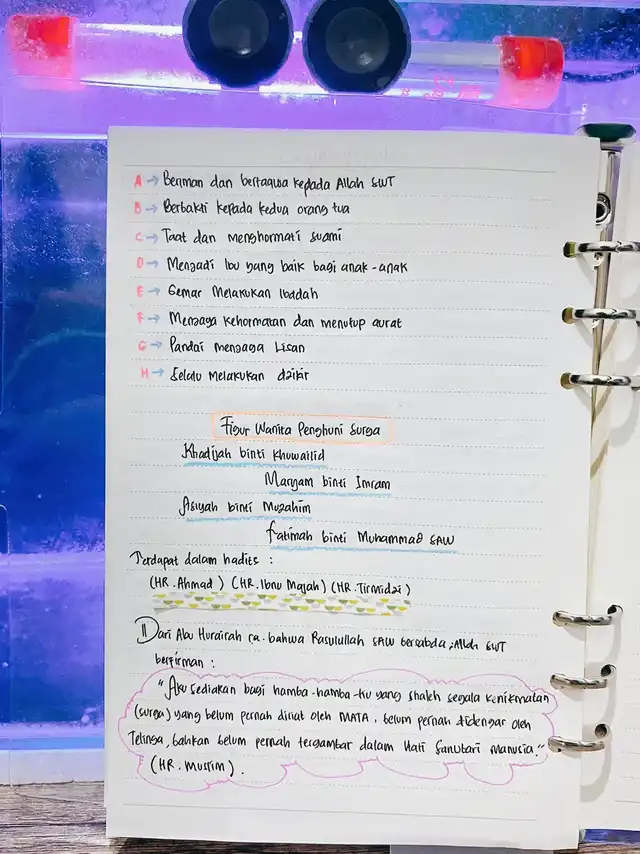 A → Beriman dan bertaqwa kepada Allah SWT
B → Berbakti kepada kedua orang tua
C → Taat dan menghormati suami
D → Menjadi Ibu yang baik bagi anak-anak
E → Gemar Melakukan Ibadah
F → Menjaga Kehormatan dan menutup aurat
G → Pandai menjaga Lisan
H → Selalu Melakukan dzikir
Figur Wanita Penghuni Surga
Khadijah binti Khuwailid
Maryam binti Imram
Asiyah binti Muzahim
Fatimah binti Muhammad SAW
Terdapat dalam hadits :
(HR. Ahmad ) (HR. Ibnu Majah) (HR. Tirmidzi )
Dari Abu Hurairah ra. bahwa Rasulullah SAW bersabda, Allah SWT
berfirman :
"Aku sediakan bagi hamba-hamba-Ku yang shaleh segala kenikmatan
(surga) yang belum pernah dilihat oleh MATA, belum pernah didengar oleh
Telinga, bahkan belum pernah tergambar dalam Hati Sanubari Manusia."
(HR. Muslim).